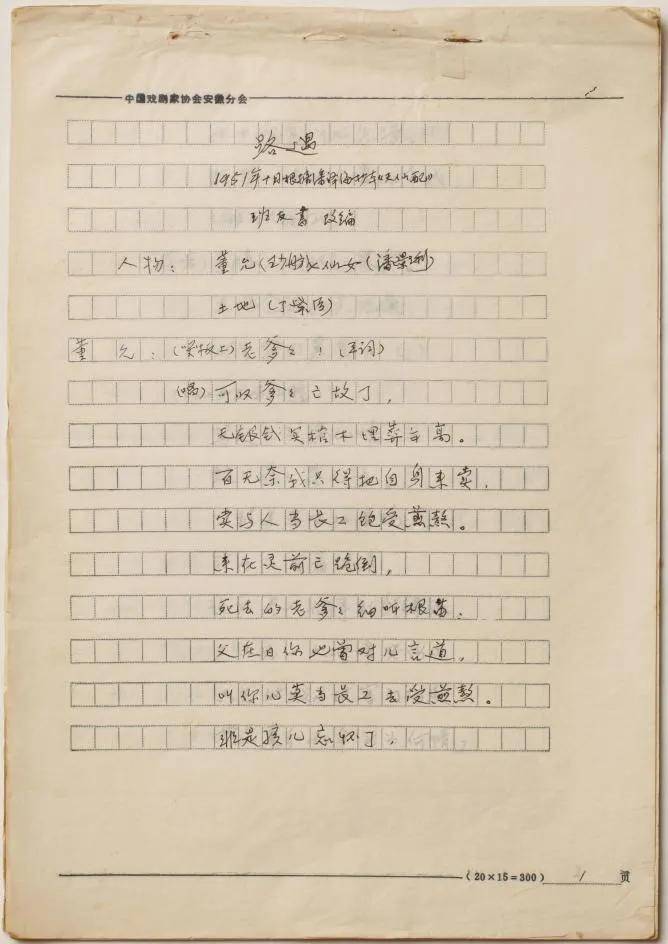 中国戏剧家协会安徽分会
路遇
1951年十月根据潘泽海抄本《天仙配》
班友书改编
人物：董允(劲舫)七仙女(潘璟琍)
土地(丁紫臣)
董允：(哭板上)老爹爹！(耳词)
(唱)可叹爹爹亡故了，
无银钱买棺木埋葬年高。
百无奈我只得把自身来卖，
卖与人当长工饱受煎熬。
来在灵前忙跪倒，
死去的老爹爹细听根苗：
父在日你也曾对儿言道，
叫你儿莫当长工去受煎熬。
非是孩儿忘怀了，
(20×15=300) 1 页